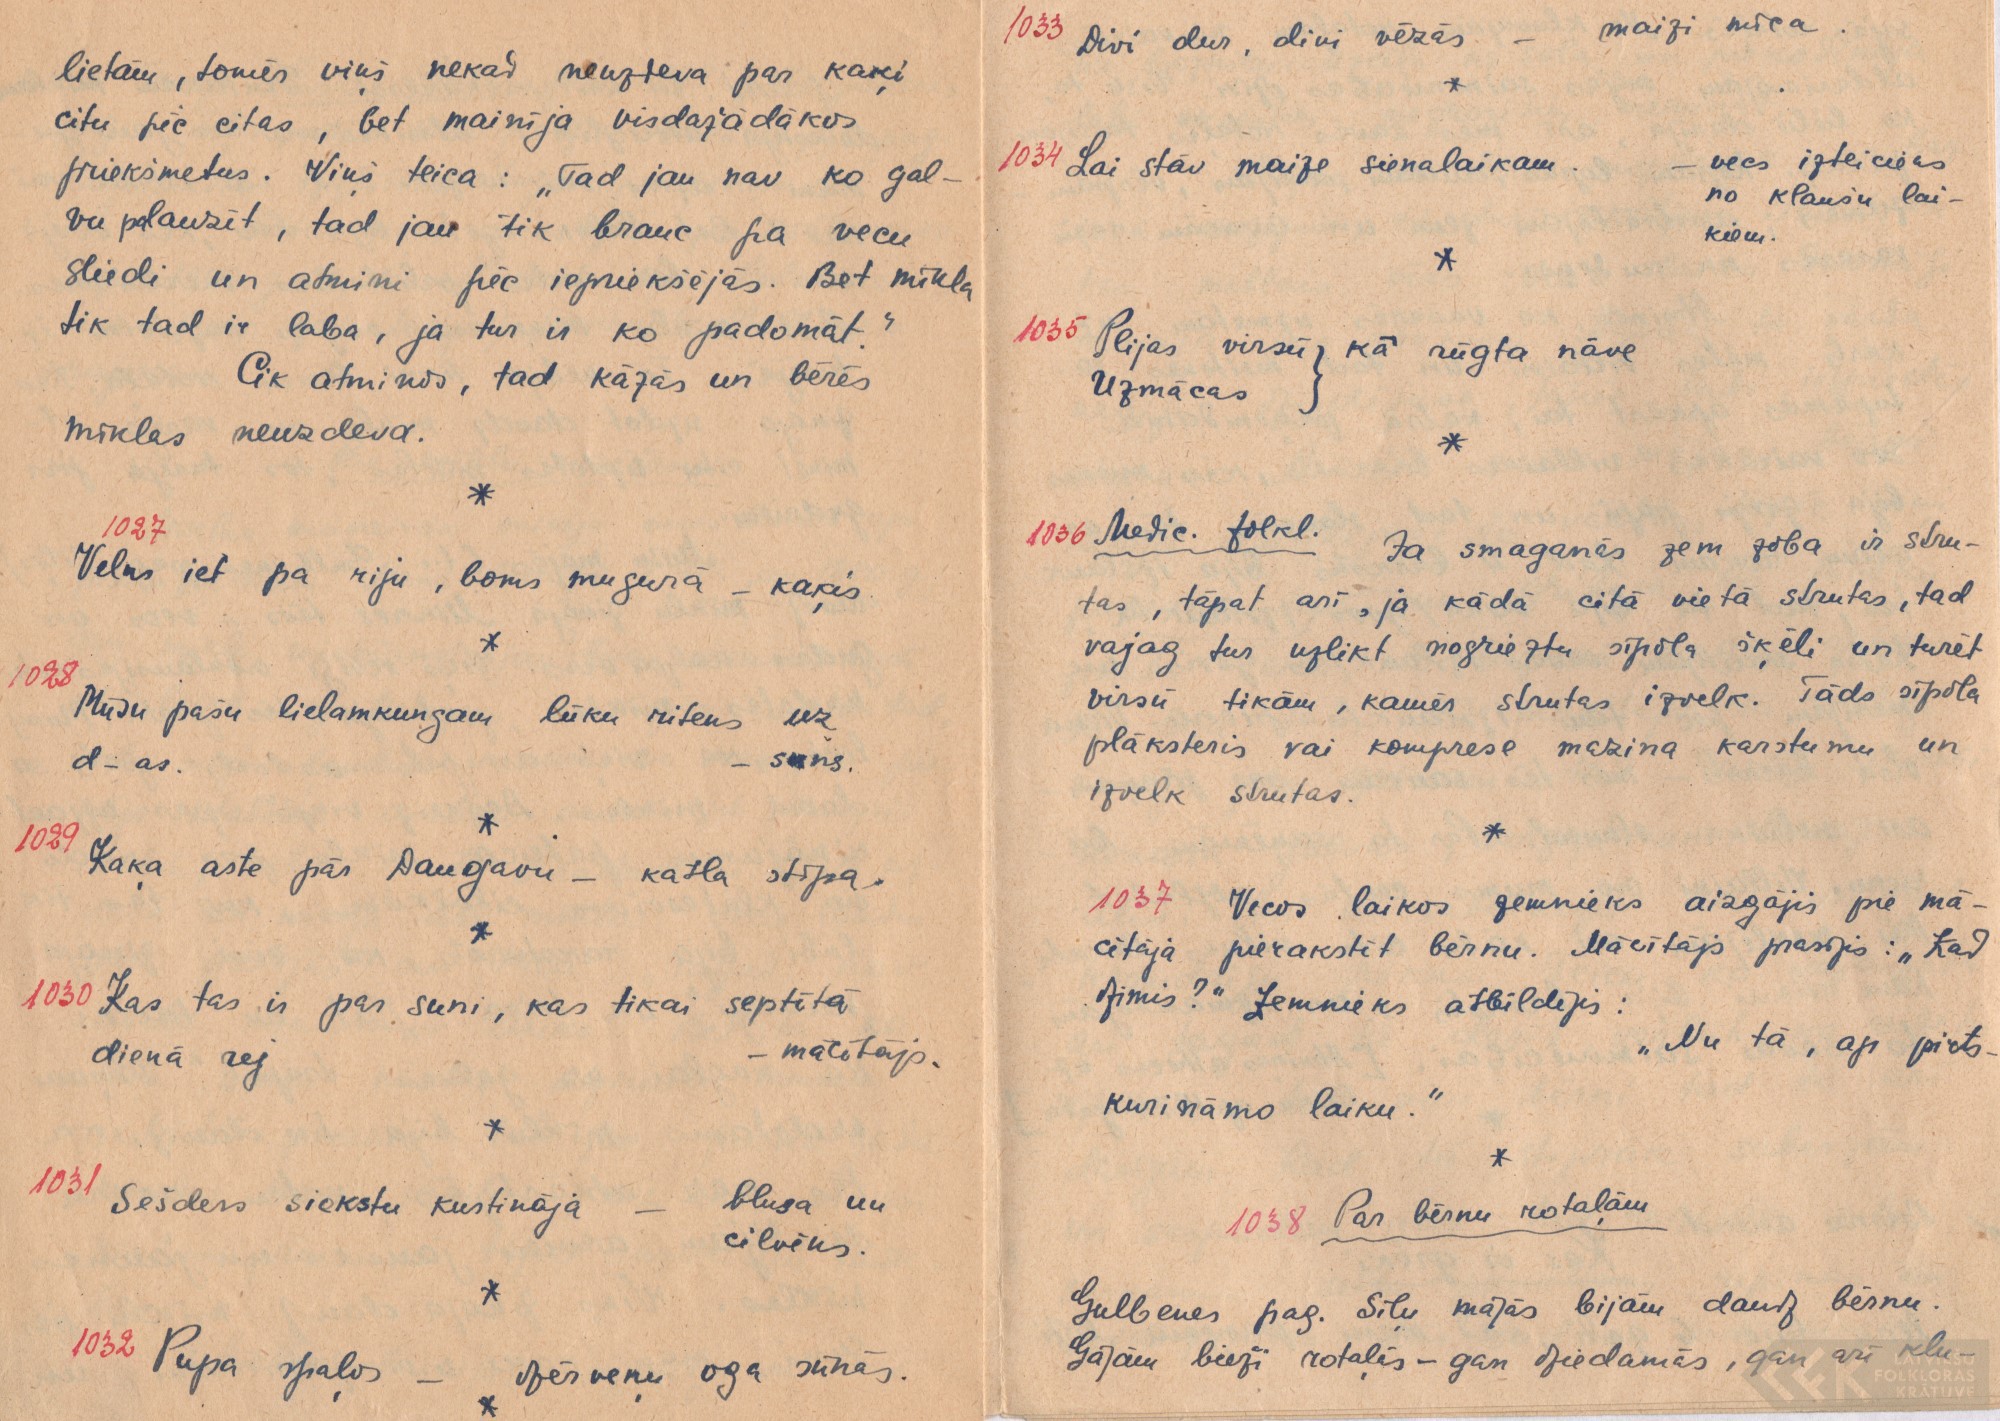 lietām, tomēr viņš nekad neuzdeva par kaķi
citu pēc citas, bet mainīja visdažādākos
priekšmetus. Viņš teica: „Tad jau nav ko gal-
vu palauzīt, tad jau tik brauc pa vecu
sliedi un atmini pēc iepriekšējās. Bet mīkla
tik tad ir laba, ja tur ir ko padomāt."
Cik atminos, tad kāzās un bērēs
mīklas neuzdeva.
*
1027
Velns iet pa riju, boms mugurā – kaķis.
*
1028
Mūsu pašu lielamkungam lūku ritens uz
d – as. – suns.
*
1029 Kaķa aste pār Daugavu – katla stīpa.
*
1030 Kas tas ir par suni, kas tikai septītā
dienā rej – mācītājs.
*
1031 Sešders siekstu kustināja – blusa un
cilvēks.
*
1032 Pupa spaļos – dzērveņu oga sūnās.
*
1033 Divi dur, divi vēzās – maizi mīca.
*
1034 Lai stāv maize sienalaikam. – vecs izteiciens
no klaušu lai-
kiem.
*
1035 Plijas virsū } kā rūgta nāve
Uzmācas
*
1036 Medic. folkl. Ja smaganās zem zoba ir stru-
tas, tāpat arī, ja kādā citā vietā strutas, tad
vajag tur uzlikt nogrieztu sīpola šķēli un turēt
virsū tikām, kamēr strutas izvelk. Tāds sīpola
plāksteris vai komprese mazina karstumu un
izvelk strutas.
*
1037 Vecos laikos zemnieks aizgājis pie mā-
cītāja pierakstīt bērnu. Mācītājs prasījis: „Kad
dzimis?" Zemnieks atbildējis:
„Nu tā, ap pirts-
kurināmo laiku."
*
1038 Par bērnu rotaļām
Gulbenes pag. Sīļu mājās bijām daudz bērnu.
Gājām bieži rotaļās – gan dziedamās, gan arī klu-
LATVIEŠU
FOLKLORAS
KRĀTUVE